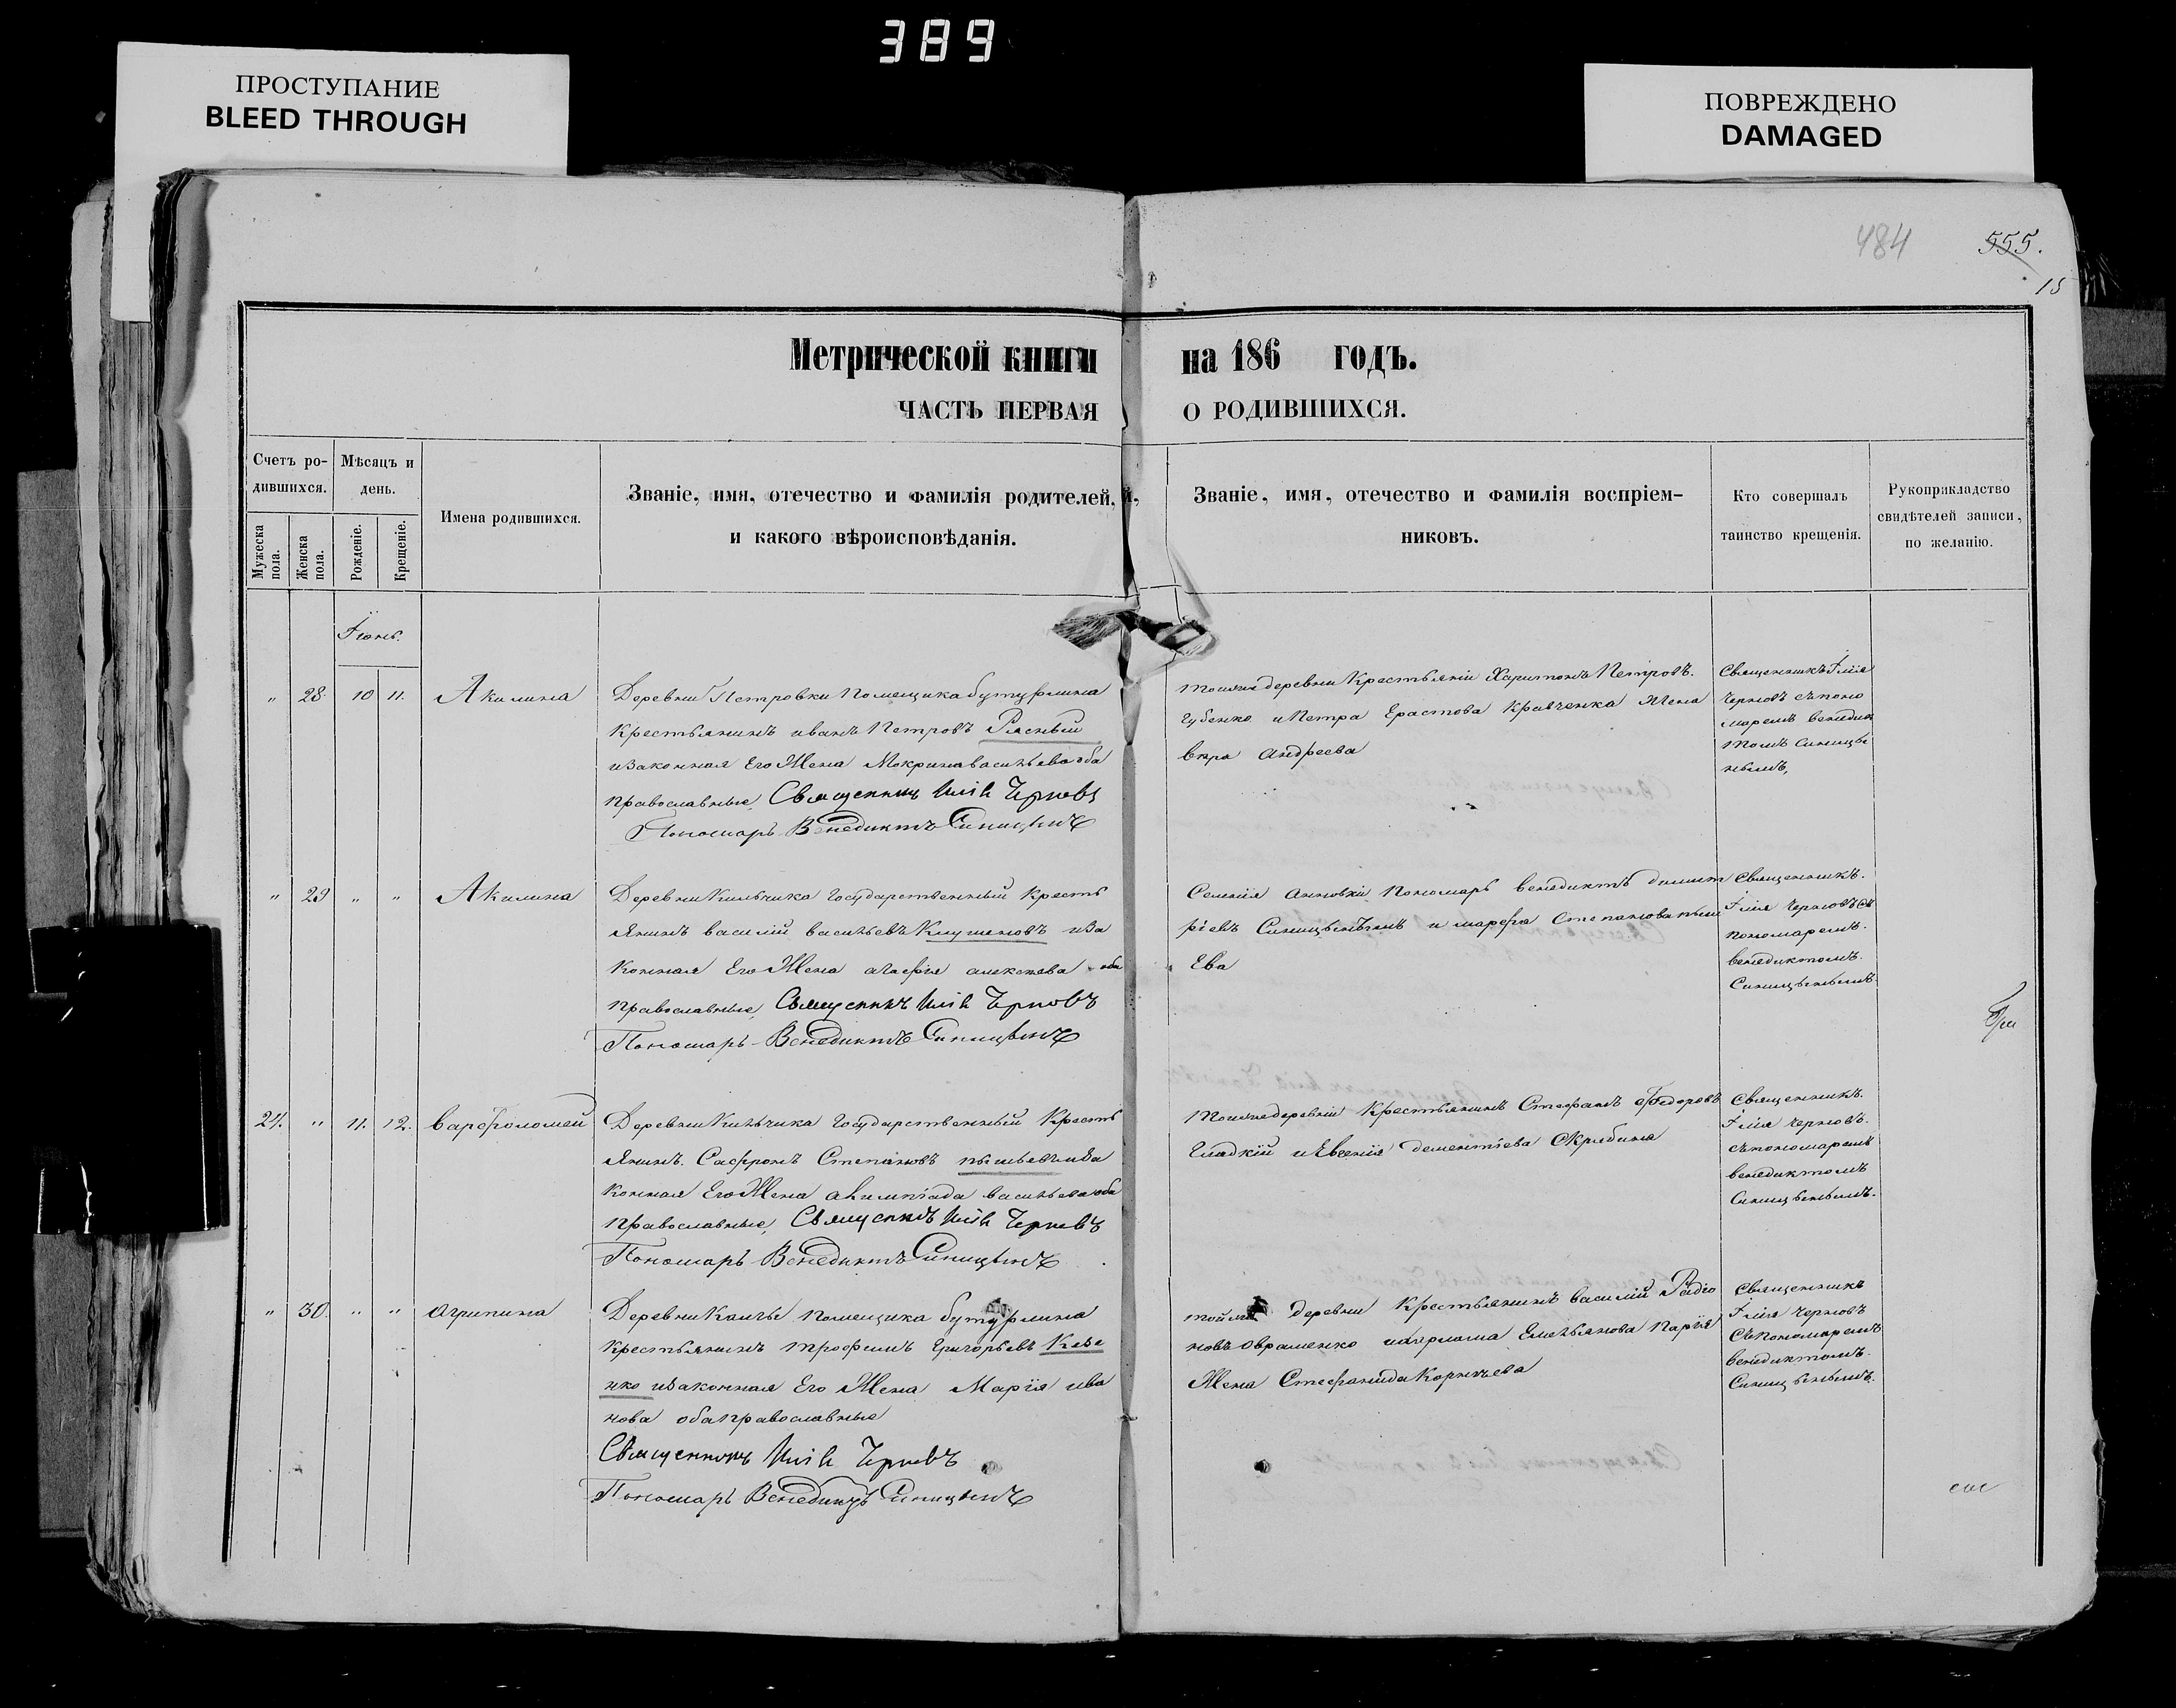 389
ПРОСТУПАНИЕ
BLEED THROUGH
ПОВРЕЖДЕНО
DAMAGED
484
555.
15
Метрической книги на 186 годъ.
ЧАСТЬ ПЕРВАЯ О РОДИВШИХСЯ.
Счетъ ро-
дившихся.
Мужеска пола.
Женска пола.
Мѣсяцъ и
день.
Рожденіе.
Крещеніе.
Имена родившихся.
Званіе, имя, отечество и фамилія родителей,
и какого вѣроисповѣданія.
Званіе, имя, отечество и фамилія воспріем-
никовъ.
Кто совершалъ
таинство крещенія.
Рукоприкладство
свидѣтелей записи,
по желанію.
Іюнь.
" 28. 10 11. Акилина
Деревни Петровки помещика бутурлина
Крестьянинъ иванъ Петровъ Рясный
изаконная Его Жена Мокрина васильева оба
православные, Священникъ Илія Черновъ
Пономарь Венедиктъ Синицынъ
тойже деревни Крестьянин Харитонъ Петровъ.
Губенко и Петра Ерастова Кравченка Жена
вера андреева
Священникъ Ілія
Черновъ съ поно
маремъ венедик
томъ Синицы
нымъ,
" 29 " " Акилина
Деревни Кильчика Государственный Кресть
янинъ василий васильевъ Клушановъ иза
конная Его Жена алексеева оба
православные, Священникъ Илія Черновъ
Пономарь Венедиктъ Синицынъ
анновки Пономарь венедиктъ димит
ріевъ и марфа Степанова
Ева
Священникъ.
Ілія Черновъ съ
пономаремъ.
венедиктомъ.
Синицынымъ
24. " 11. 12. варфоломей
Деревни Кильчика Государственный Кресть
янинъ. Сафронъ Степановъ иза
конная Его Жена алимпіада васильева оба
православные, Священникъ Илія Черновъ
Пономарь Венедиктъ Синицынъ
тоижедеревни Крестьянинъ Стефанъ Федоровъ
Гладкій и Евгенія дементіева Скрябина
Священникъ.
Ілія Черновъ.
съпономаремъ
венедиктомъ
Синицынымъ.
" 30. " " агрипина
Деревни помещика бутурлина
Крестьянинъ трофимъ Григорьевъ Кове
нко изаконная Его Жена Марія ива
нова оба православные
Священникъ Илія Черновъ
Пономарь Венедиктъ Синицынъ
тойже деревни Крестьянинъ василий Радіо
новъ овраменко Емельянова
Жена Стефанида Корнеева
Священникъ
Ілія Черновъ
Съпономаремъ
венедиктомъ.
Синицынымъ.